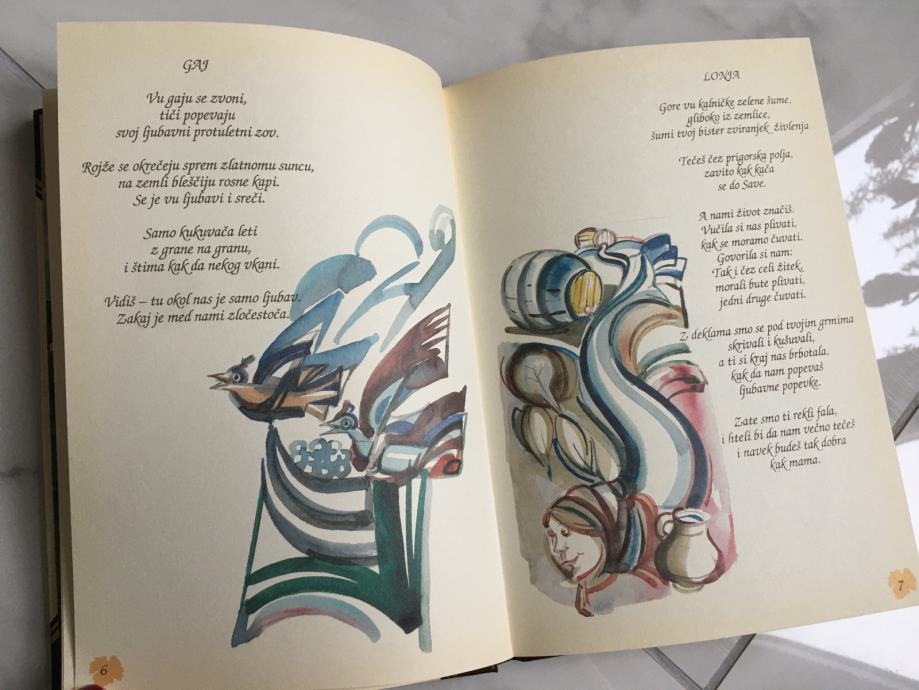 GAJ
Vu gaju se zvoni,
tiči popevaju
svoj ljubavni protuletni zov.
Rojže se okrečeju sprem zlatnomu suncu,
na zemli bleščiju rosne kapi.
Se je vu ljubavi i sreči.
Samo kukuvača leti
z grane na granu,
i štima kak da nekog vkani.
Vidiš – tu okol nas je samo ljubav.
Zakaj je med nami zločestoča.
6
LONJA
Gore vu kalničke zelene šume,
gliboko iz zemlice,
šumi tvoj bister zviranjek življenja
Tečeš čez prigorska polja,
zavito kak kača
se do Save.
A nami život značiš.
Vučila si nas plivati,
kak se moramo čuvati.
Govorila si nam:
Tak i čez celi žitek,
morali bute plivati,
jedni druge čuvati.
Z deklama smo se pod tvojim grmima
skrivali i kušuvali,
a ti si kraj nas brbotala,
kak da nam popevaš
ljubavne popevke.
Zate smo ti rekli fala,
i hteli bi da nam večno tečeš
i navek budeš tak dobra
kak mama.
7